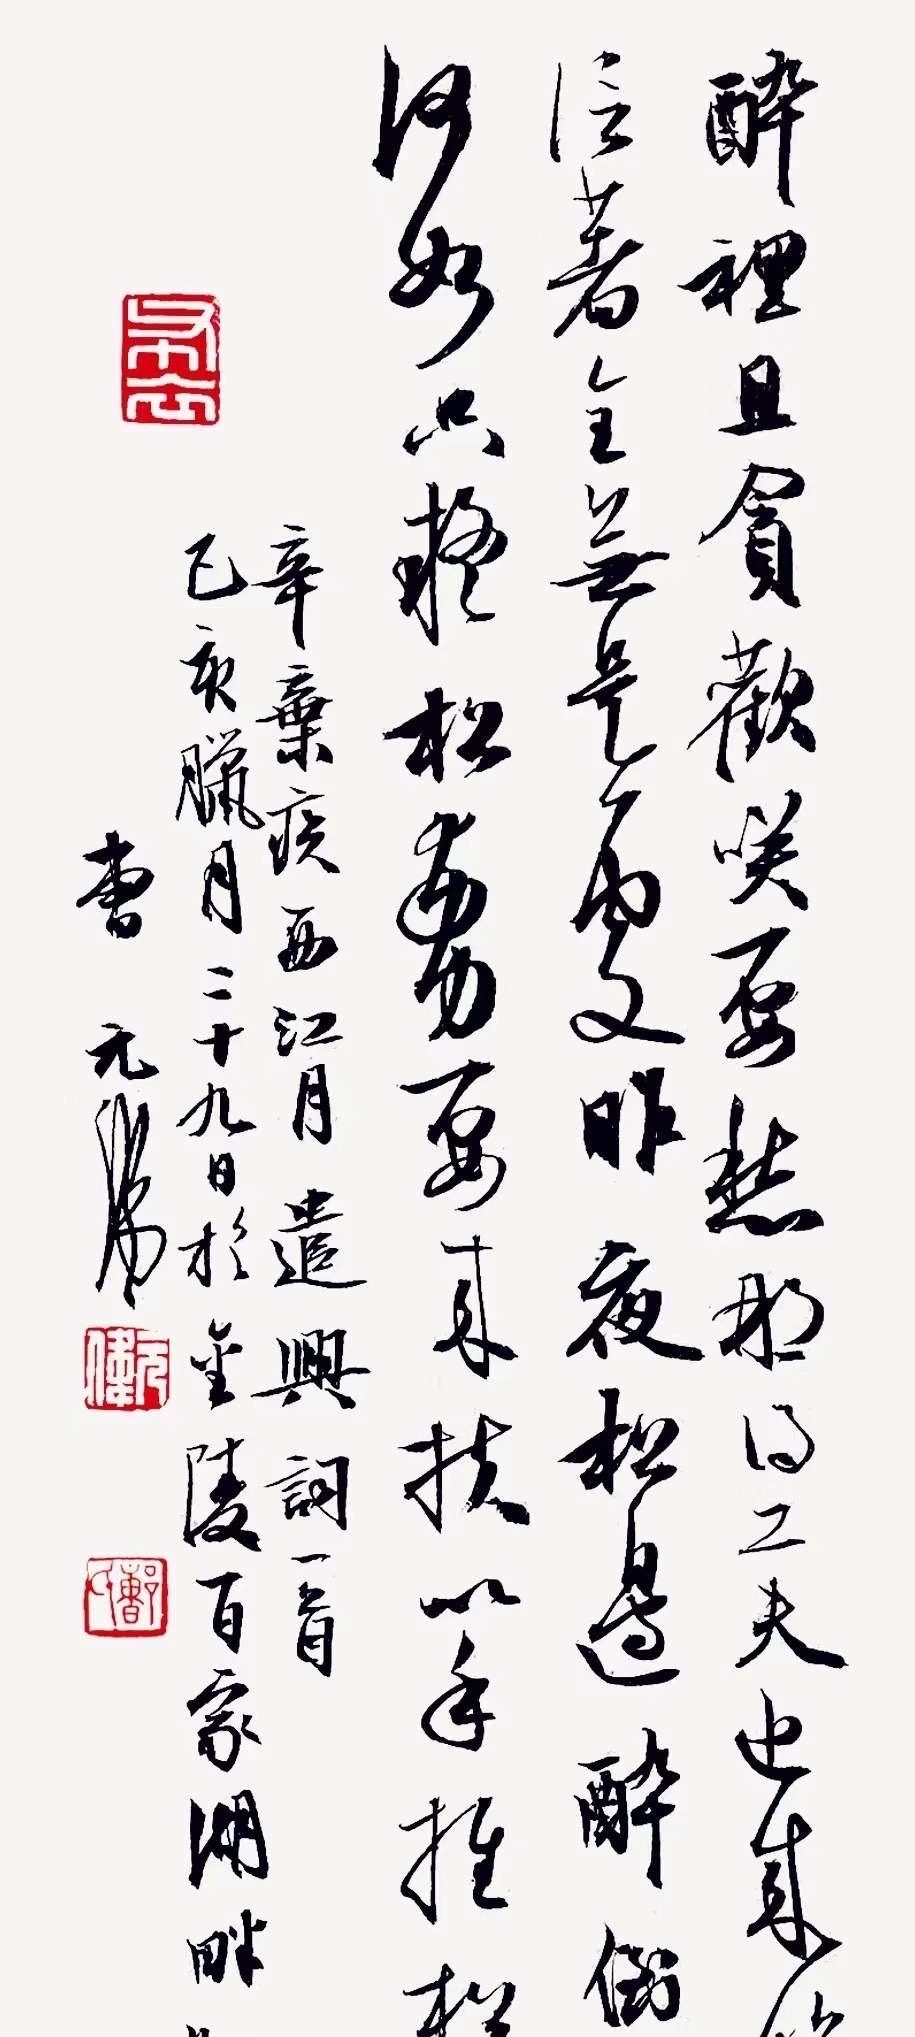 醉裡且貪歡笑要愁那得工夫近來
信著全無是處昨夜松邊醉倒
何如只疑松動要來扶以手推松
辛棄疾西江月遣興詞一首
己亥臘月二十九日於金陵百家湖畔
曹元偉